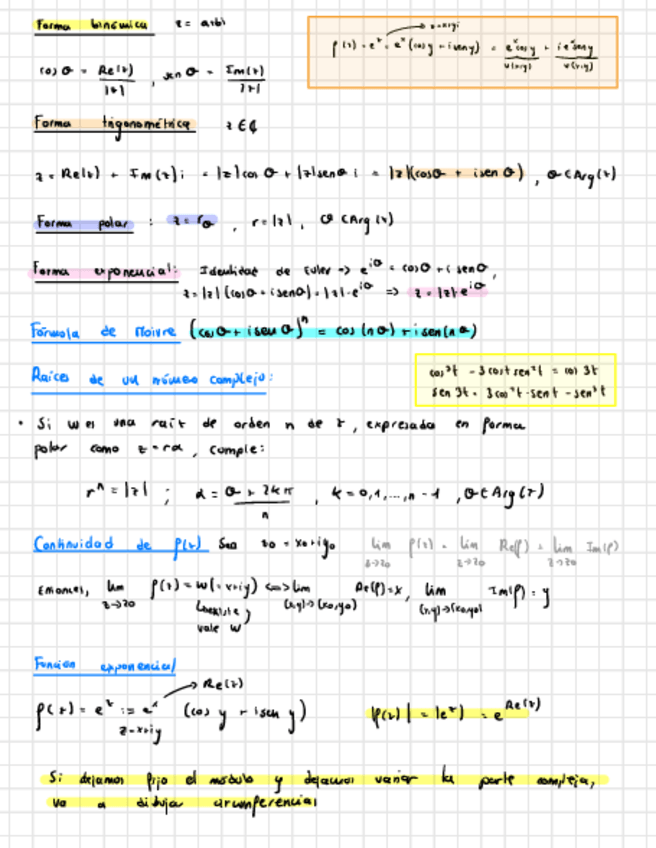 Forma binómica z = a+bi
z=x+yi
f(z) = e^z = e^x (cos y + i sen y) = e^x cos y + i e^x sen y
u(x,y) v(x,y)
cos θ = Re(z)/|z| , sen θ = Im(z)/|z|
Forma trigonométrica z ∈ ℂ
z = Re(z) + Im(z)i = |z| cos θ + |z| sen θ i = |z|(cos θ + i sen θ) , θ ∈ Arg(z)
Forma polar : z = r_θ , r = |z| , θ ∈ Arg(z)
Forma exponencial: Identidad de Euler => e^{iθ} = cos θ + i sen θ,
z = |z| (cos θ + i sen θ) = |z|·e^{iθ} => z = |z|·e^{iθ}
Fórmula de Moivre (cos θ + i sen θ)^n = cos (nθ) + i sen (nθ)
Raíces de un número complejo:
cos³t - 3 cos t sen²t = cos 3t
sen 3t = 3 cos²t · sen t - sen³t
• Si w es una raíz de orden n de z, expresada en forma
polar como z = rα, cumple:
r^n = |z| ; α = (θ + 2kπ)/n , k = 0,1,...,n-1 , θ ∈ Arg(z)
Continuidad de f(z) Sea z0 = x0+iy0 lim z->z0 f(z) = lim z->z0 Re(f) = lim z->z0 Im(f)
Entonces, lim z->z0 f(z) = w (= x+iy) <=> lim (x,y)->(x0,y0) Re(f) = x, lim (x,y)->(x0,y0) Im(f) = y
vale w
Función exponencial
Re(z)
f(z) = e^z := e^x (cos y + i sen y) |f(z)| = |e^z| = e^{Re(z)}
z=x+iy
Si dejamos fijo el módulo y dejamos variar la parte compleja,
va a dibujar circunferencias